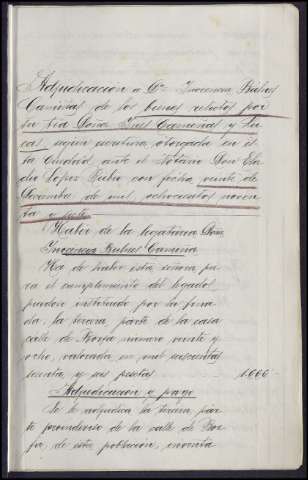 Adjudicación a Dª Inocencia Rubies
Camiñas de los bienes relictos por
su tía Doña Inés Camiñas y Lu
cas, según escritura otorgada en es
ta Ciudad, ante el Notario Don Ela
dio Lopez Rubio con fecha veinte de
Noviembre de mil ochocientos noven
ta y
Haber de la legataria Doña
Inocencia Rubies Camiña
Ha de haber esta señora pa
ra el cumplimiento del legado
pardon instituido por la fina
da, la tercera parte de la casa
calle de Borja número veinte y
ocho, valorada en mil seiscientas
sesenta y seis pesetas 1.666
Adjudicación y pago
Se le adjudica la tercera par
te proindiviso de la calle de Bor
ja, de esta población, marcada